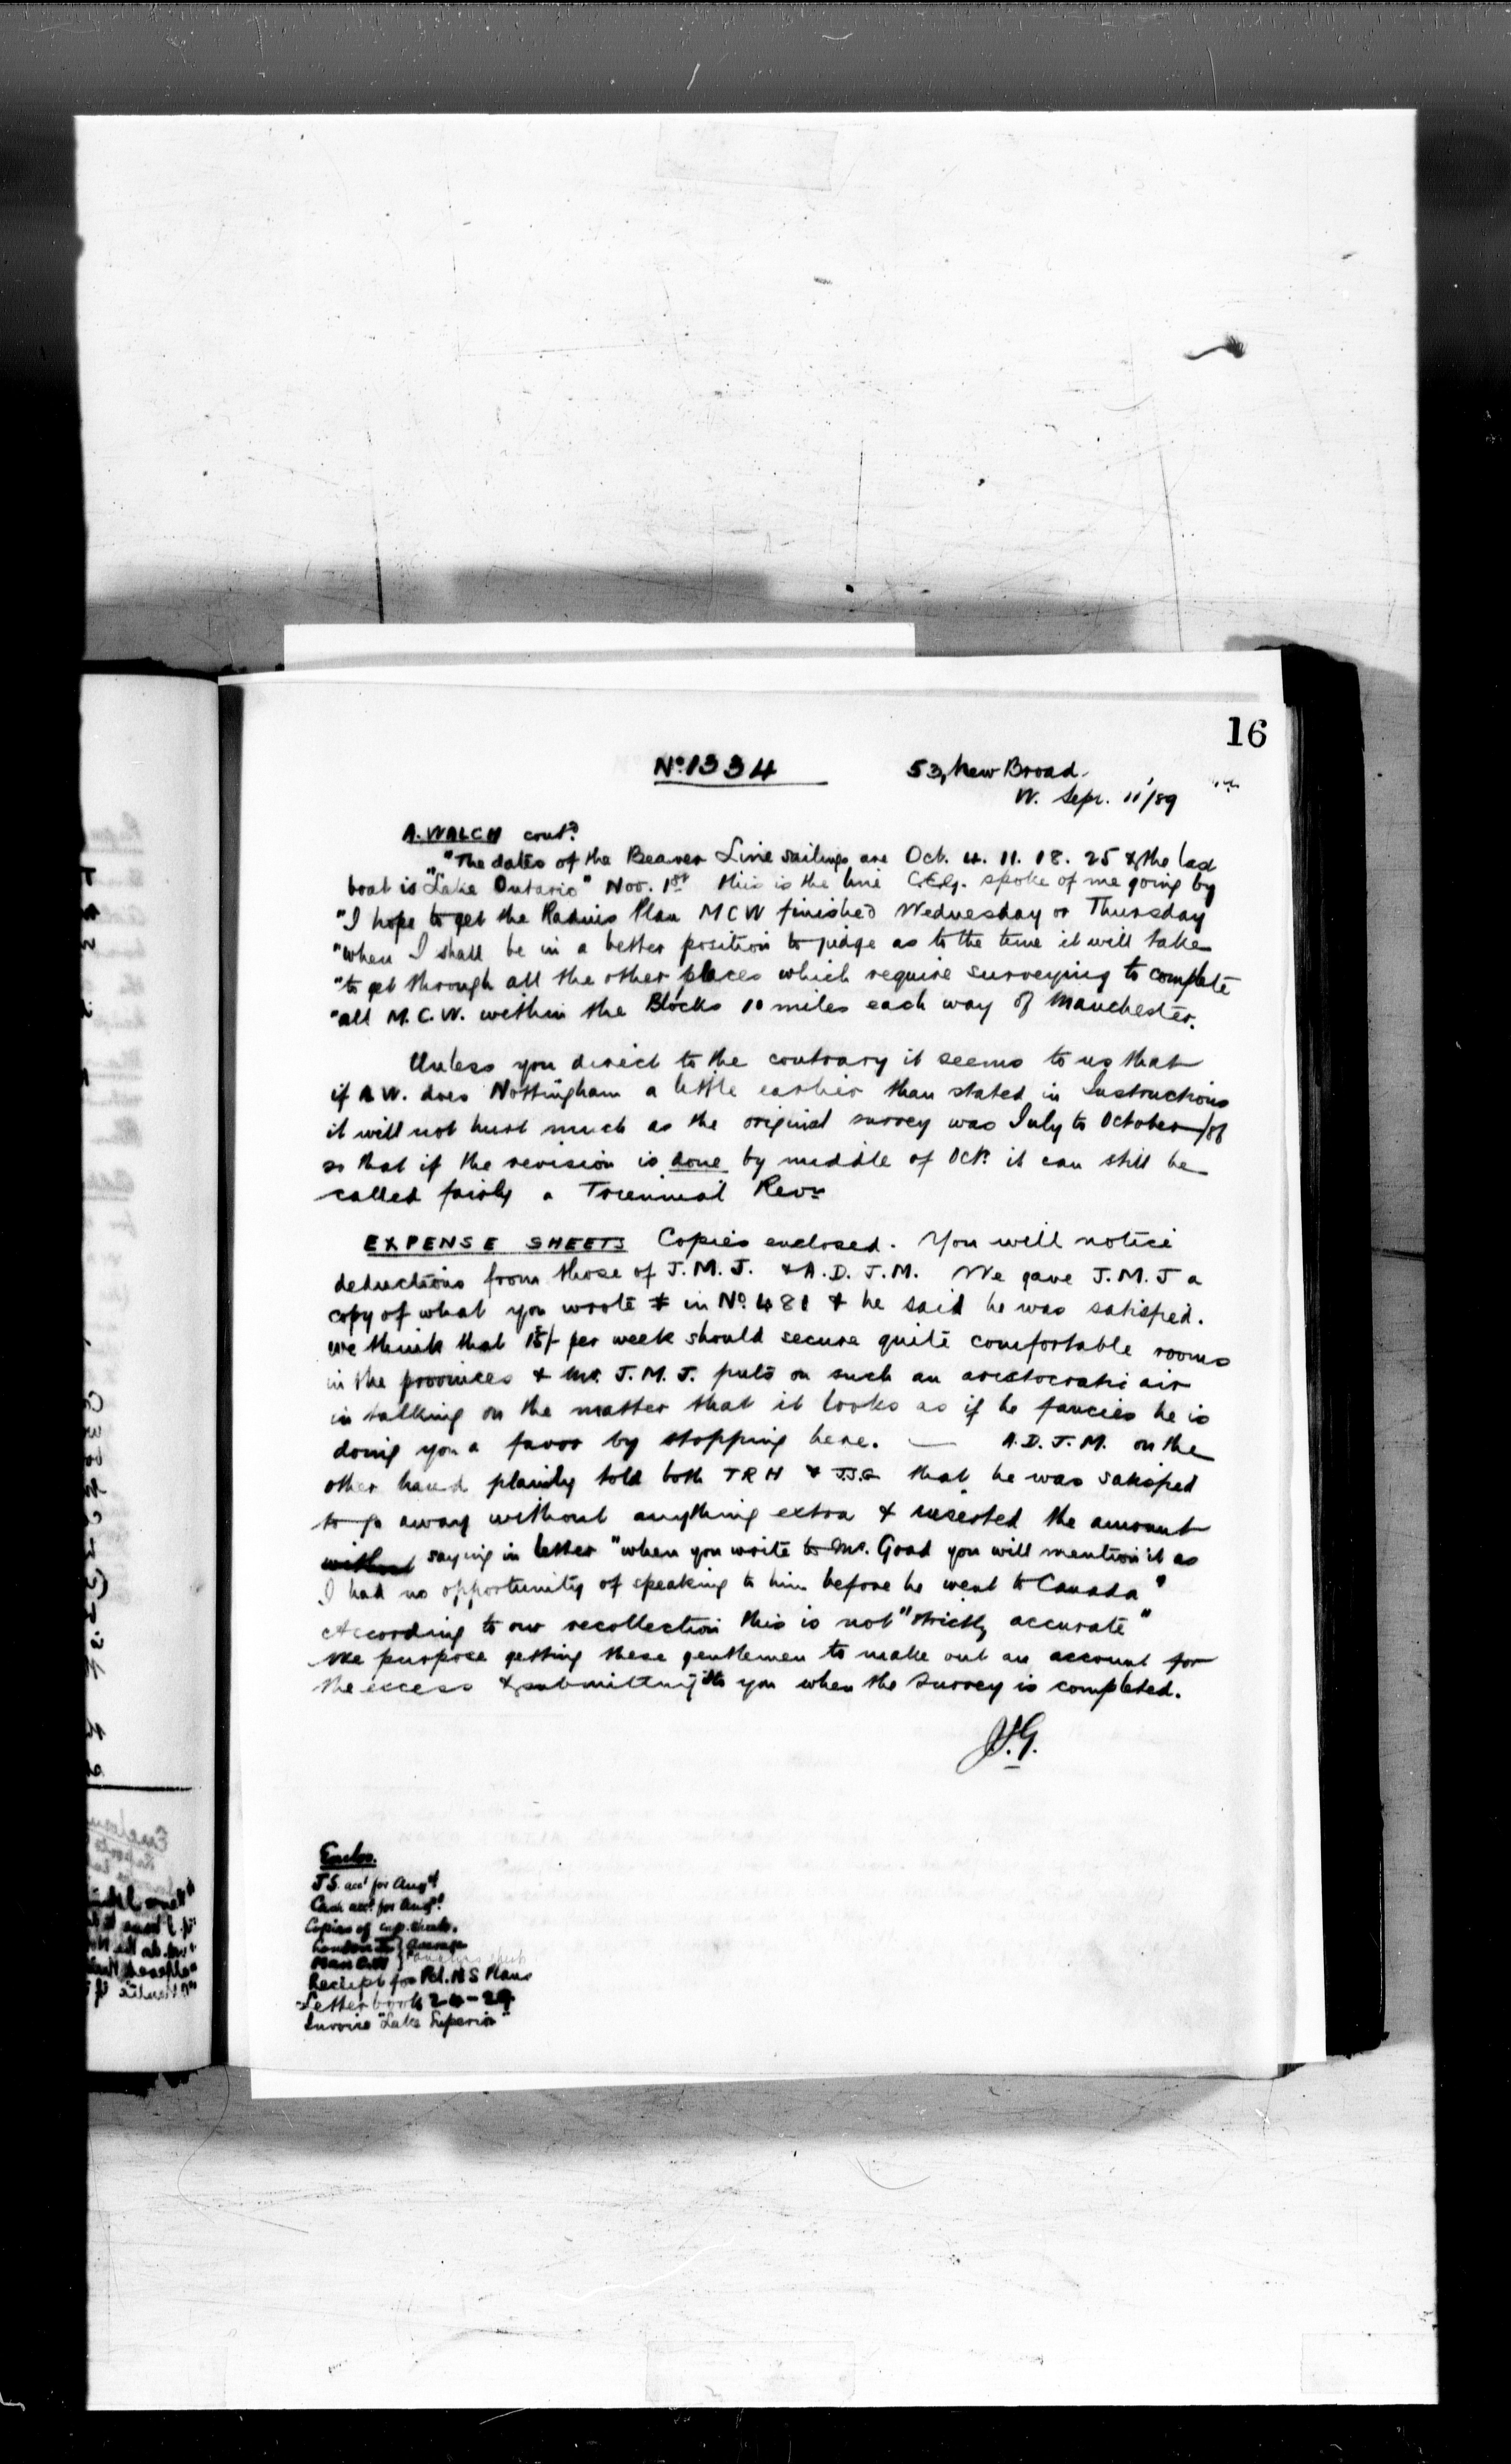 16
No. 1334
53, New Broad.
W. Sepr. 11/89
A. WALCH contd
"The dates of the Beaver Line sailings are Oct. 4. 11. 18. 25 & the last
boat is "Lake Ontario" Nov. 1st this is the line C.E.G. spoke of me going by
"I hope to get the Radius Plan MCW finished Wednesday or Thursday
"when I shall be in a better position to judge as to the time it will take
"to get through all the other places which require surveying to complete
"all M.C.W. within the Blocks 10 miles each way of Manchester.
Unless you direct to the contrary it seems to us that
if A W. does Nottingham a little earlier than stated in Instructions
it will not hurt much as the original survey was July to October
so that if the revision is done by middle of Oct. it can still be
called fairly a Triennial Revn
EXPENSE SHEETS Copies enclosed. You will notice
deductions from those of J.M.J. & A.D.J.M. We gave J.M.J a
copy of what you wrote in No. 481 & he said he was satisfied.
we think that 15/- per week should secure quite comfortable rooms
in the provinces & Mr. J.M.J. puts on such an aristocratic air
in talking on the matter that it looks as if he fancies he is
doing you a favor by stopping here. — A.D.J.M. on the
other hand plainly told both TRH & J.J.G that he was satisfied
to go away without anything extra & inserted the amount
without saying in letter "when you write to Mr. Goad you will mention it as
I had no opportunity of speaking to him before he went to Canada"
According to our recollection this is not "strictly accurate"
We purpose getting these gentlemen to make out an account for
the excess & submitting to you when the Survey is completed.
J.G.
Enclos.
J S. acct for Augst
Cash acct for Augst
Copies of exp. sheets.
London
Man C.W
Receipt for Pcl. N S Plans
Letter book 24-29
Invoice "Lake Superior"